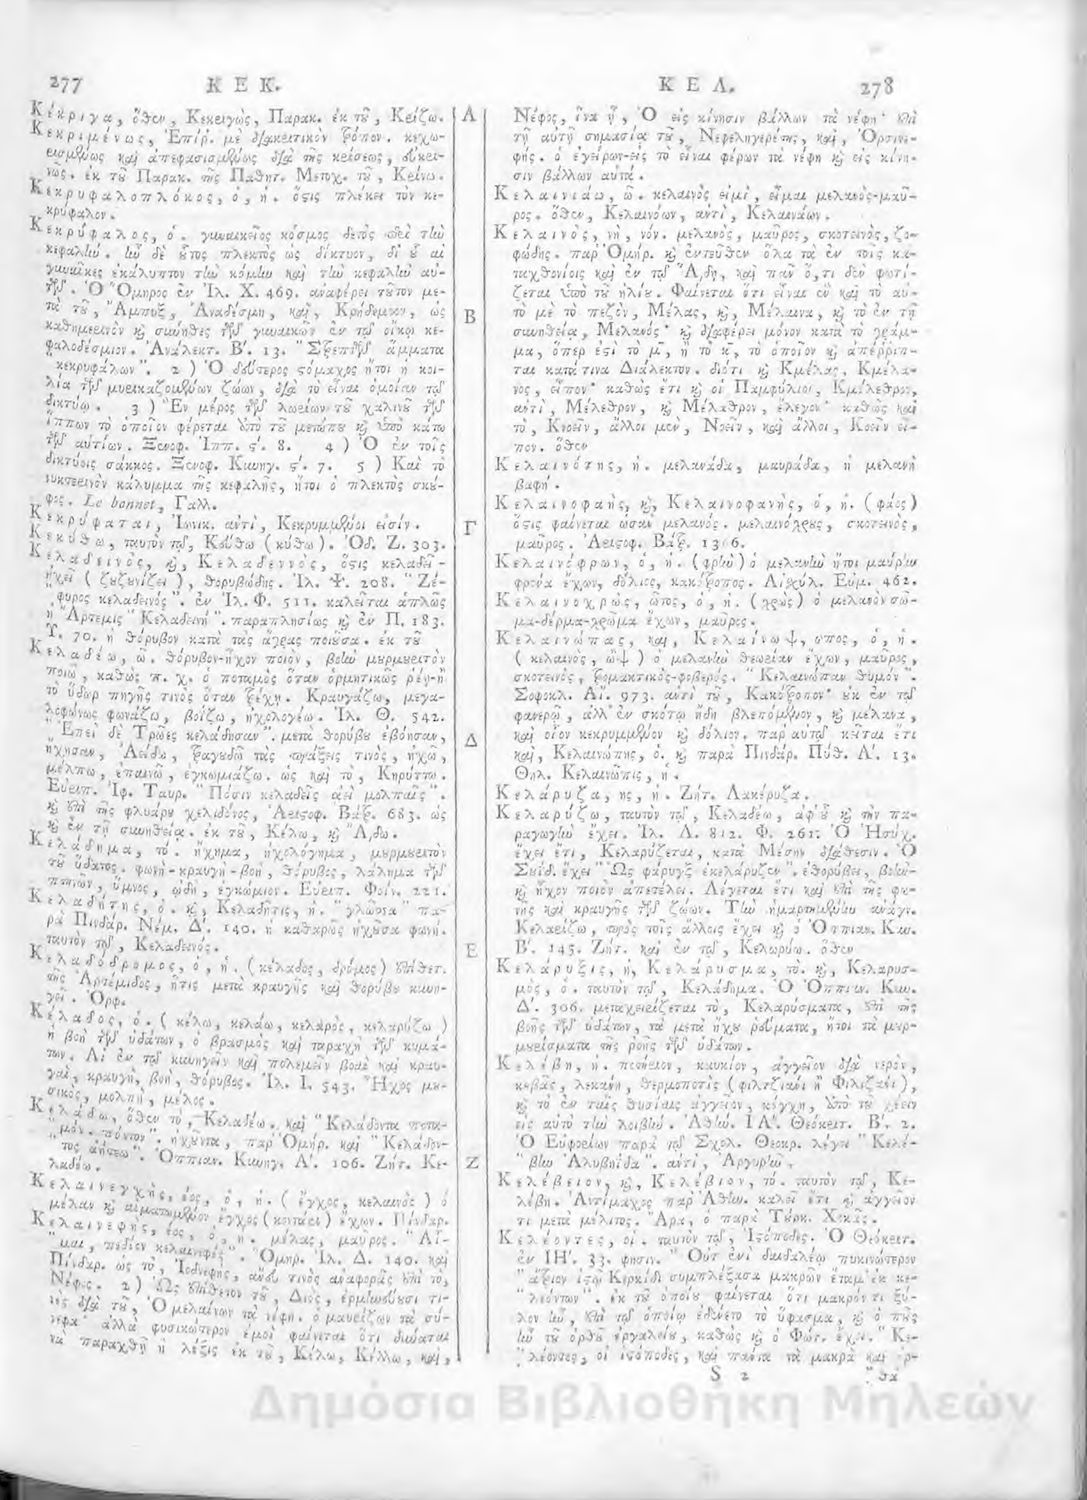 277 ΚΕΚ.
Κέκριγα, ὅθεν, Κεκριγὼς, Παρακ. ἐκ τοῦ, Κρίζω.
Κεκριμένως, Ἐπίρ. μὲ διακριτικὸν τρόπον. κεχω-
ρισμένως καὶ ἀπεφασισμένως διὰ τῆς κρίσεως, εὐκρι-
νῶς. ἐκ τοῦ Παρακ. τῆς Παθητ. Μετοχ. τοῦ, Κρίνω.
Κεκρυφαλοπλόκος, ὁ, ἡ. ὅστις πλέκει τὸν κε-
κρύφαλον.
Κεκρύφαλος, ὁ. γυναικεῖος κόσμος δετὸς περὶ τὴν
κεφαλήν. ἦν δὲ οὗτος πλεκτὸς ὡς δίκτυον, δι' οὗ αἱ
γυναῖκες ἐκάλυπτον τὴν κόμην καὶ τὴν κεφαλὴν αὑ-
τῶν. Ὁ Ὅμηρος ἐν Ἰλ. Χ. 469. ἀναφέρει τοῦτον με-
τὰ τοῦ, Ἄμπυξ, Ἀναδέσμη, καὶ, Κρήδεμνον, ὡς
καθημερινὸν καὶ συνηθες τῶν γυναικῶν ἐν τῷ οἴκῳ κε-
φαλοδέσμιον. Ἀνάλεκτ. Β'. 13. "Στρεπτῶν ἅμματα
κεκρυφάλων". 2) Ὁ δεύτερος στόμαχος ἤτοι ἡ κοι-
λία τῶν μυρικαζομένων ζώων, διὰ τὸ εἶναι ὁμοίαν τῷ
δικτύῳ. 3) Ἓν μέρος τῶν λωρίων τοῦ χαλινοῦ τῶν
ἵππων τὸ ὁποῖον φέρεται ὑπὸ τοῦ μετώπου καὶ ὑπὸ κάτω
τῶν αὐτίων. Ξενοφ. Ἱππ. ϛ'. 8. 4) Ὁ ἐν τοῖς
δικτύοις σάκκος. Ξενοφ. Κυνηγ. ϛ'. 7. 5) Καὶ τὸ
νυκτερινὸν κάλυμμα τῆς κεφαλῆς, ἤτοι ὁ πλεκτὸς σκοῦ-
φος. Le bonnet, Γαλλ.
Κεκρύφαται, Ἰωνικ. ἀντὶ, Κεκρυμμένοι εἰσίν.
Κεκύθω, ταυτὸν τῷ, Κεύθω (κύθω). Ὀδ. Ζ. 303.
Κελαδεινὸς, καὶ, Κελαδεννὸς, ὅστις κελαδεῖ-
ἠχεῖ (ζυζυνίζει), θορυβώδης. Ἰλ. Ψ. 208. "Ζέ-
φυρος κελαδεινὸς". ἐν Ἰλ. Φ. 511. καλεῖται ἁπλῶς
ἡ Ἄρτεμις "Κελαδεινὴ". παραπλησίως καὶ ἐν Π. 183.
Υ. 70. ἡ θόρυβον κατὰ τὰς ἄγρας ποιοῦσα. ἐκ τοῦ
Κελαδέω, ῶ. θόρυβον-ἦχον ποιῶ, βοὴν μυρμυριτὸν
ποιῶ, καθὼς π. χ. ὁ ποταμὸς ὅταν ὁρμητικῶς ῥέῃ-ἢ
τὸ ὕδωρ πηγῆς τινὸς ὅταν τρέχῃ. Κραυγάζω, μεγα-
λοφώνως φωνάζω, βοΐζω, ἠχολογέω. Ἰλ. Θ. 542.
"Ἐπεὶ δὲ Τρῶες κελάδησαν". μετὰ θορύβου ἐβόησαν,
ἤχησαν, Ἀείδω, τραγωδῶ τὰς πράξεις τινὸς, ἠχῶ,
μέλπω, ἐπαινῶ, ἐγκωμιάζω. ὡς καὶ τὸ, Κηρύττω.
Εὐριπ. Ἰφ. Ταυρ. "Πόσιν κελαδεῖς ἀεὶ μολπαῖς".
καὶ ἐπὶ τῆς φλυάρου χελιδόνος, Ἀριστοφ. Βάτρ. 683. ὡς
καὶ ἐν τῇ συνηθείᾳ. ἐκ τοῦ, Κέλω, καὶ Ἄδω.
Κελάδημα, τό. ἤχημα, ἠχολόγημα, μυρμυριτὸν
τοῦ ὕδατος. φωνὴ-κραυγὴ-βοὴ, θόρυβος, λάλημα τῶν
πτηνῶν, ὕμνος, ᾠδὴ, ἐγκώμιον. Εὐριπ. Φοίν. 221.
Κελαδητὴς, ὁ. καὶ, Κελαδῆτις, ἡ. "γλῶσσα" πα-
ρὰ Πινδάρ. Νεμ. Δ'. 140. ἡ καθαρῶς ἠχοῦσα φωνή.
ταυτὸν τῷ, Κελαδεινός.
Κελαδόδρομος, ὁ, ἡ. (κέλαδος, δρόμος) ἐπίθετ.
τῆς Ἀρτέμιδος, ἥτις μετὰ κραυγῆς καὶ θορύβου κυνη-
γεῖ. Ὀρφ.
Κέλαδος, ὁ. (κέλω, κελάω, κελαρὸς, κελαρύζω)
ἡ βοὴ τῶν ὑδάτων, ὁ βρασμὸς καὶ ταραχὴ τῶν κυμά-
των. Αἱ ἐν τῷ κυνηγεῖν καὶ πολεμεῖν βοαὶ καὶ κραυ-
γαὶ, κραυγὴ, βοὴ, θόρυβος. Ἰλ. Ι. 543. Ἦχος μου-
σικὸς, μολπὴ, μέλος.
Κελάδω, ὅθεν τὸ, Κελαδέω. καὶ "Κελάδοντα ποτα-
"μόν. πόντον". ἠχοῦντα, παρ' Ὁμήρ. καὶ "Κελάδον-
τος ἀήτεω". Ὀππιαν. Κυνηγ. Α'. 106. Ζήτ. Κε-
λαδέω.
Κελαινεγχὴς, έος, ὁ, ἡ. (ἔγχος, κελαινὸς) ὁ
μέλαν καὶ αἱματωμένον ἔγχος (κοντάρι) ἔχων. Πίνδαρ.
Κελαινεφὴς, έος, ὁ, ἡ. μέλας, μαῦρος. "Αἷ-
"μα, πεδίον κελαινεφὲς". Ὁμηρ. Ἰλ. Δ. 140. καὶ
Πίνδαρ. ὡς τὸ, Ἰοδνεφὴς, ἄνευ τινὸς ἀναφορᾶς ἐπὶ τὸ,
Νέφος. 2) Ὡς ἐπίθετον τοῦ, Διὸς, ἑρμηνεύουσί τι-
νὲς διὰ τοῦ, Ὁ μελαίνων τὰ νέφη. ὁ μαυρίζων τὰ σύ-
νεφα· ἀλλὰ φυσικώτερον ἐμοὶ φαίνεται ὅτι δύναται
νὰ παραχθῇ ἡ λέξις ἐκ τοῦ, Κέλω, Κέλλω, καὶ,
Α
Β
Γ
Δ
Ε
Ζ
ΚΕΛ. 278
Νέφος, ἵνα ᾖ, Ὁ εἰς κίνησιν βάλλων τὰ νέφη· ἐπὶ
τῇ αὐτῇ σημασίᾳ τοῦ, Νεφεληγερέτης, καὶ, Ὀρσινε-
φής. ὁ ἐγείρων-εἰς τὸ εἶναι φέρων τὰ νέφη καὶ εἰς κίνη-
σιν βάλλων αὐτά.
Κελαινιάω, ῶ. κελαινὸς εἰμὶ, εἶμαι μελανὸς-μαῦ-
ρος. ὅθεν, Κελαινόων, ἀντὶ, Κελαινάων.
Κελαινὸς, νὴ, νόν. μελανὸς, μαῦρος, σκοτεινὸς, ζο-
φώδης. παρ' Ὁμήρ. καὶ ἐντεῦθεν ὅλα τὰ ἐν τοῖς κα-
ταχθονίοις καὶ ἐν τῷ Ἅδῃ, καὶ πᾶν ὅ,τι δὲν φωτί-
ζεται ὑπὸ τοῦ ἡλίου. Φαίνεται ὅτι εἶναι ἓν καὶ τὸ αὐ-
τὸ μὲ τὸ πεζὸν, Μέλας, καὶ, Μέλαινα, καὶ τὸ ἐν τῇ
συνηθείᾳ, Μελανός· καὶ διαφέρει μόνον κατὰ τὸ γράμ-
μα, ὅπερ ἐστὶ τὸ μ, ἢ τὸ κ, τὸ ὁποῖον καὶ ἀπερρίπ-
ται κατά τινα Διάλεκτον. διότι καὶ Κμέλας, Κμέλα-
νος, εἶπον· καθὼς ἔτι καὶ οἱ Παμφύλιοι, Κμέλεθρον,
ἀντὶ, Μέλεθρον, καὶ Μέλαθρον, ἔλεγον· καθὼς καὶ
τὸ, Κνοεῖν, ἄλλοι μὲν, Νοεῖν, καὶ ἄλλοι, Κοεῖν εἶ-
πον. ὅθεν
Κελαινότης, ἡ. μελανάδα, μαυράδα, ἡ μελανὴ
βαφή.
Κελαινοφαὴς, καὶ, Κελαινοφανὴς, ὁ, ἡ. (φάος)
ὅστις φαίνεται ὡσὰν μελανός. μελανόχρους, σκοτεινὸς,
μαῦρος. Ἀριστοφ. Βάτρ. 1366.
Κελαινόφρων, ὁ, ἡ. (φρὴν) ὁ μελανὴν ἤτοι μαύρην
φρένα ἔχων, δόλιος, κακότροπος. Αἰσχύλ. Εὐμ. 462.
Κελαινοχρὼς, ῶτος, ὁ, ἡ. (χρὼς) ὁ μελανὸν σῶ-
μα-δέρμα-χρῶμα ἔχων, μαῦρος.
Κελαινώπας, καὶ, Κελαίνωψ, ωπος, ὁ, ἡ.
(κελαινὸς, ὢψ) ὁ μελανὴν θεωρίαν ἔχων, μαῦρος,
σκοτεινὸς, τρομακτικὸς-φοβερός. "Κελαινώπαν θυμὸν".
Σοφοκλ. Αἴ. 973. ἀντὶ τοῦ, Κακότροπον· οὐκ ἐν τῷ
φανερῷ, ἀλλ' ἐν σκότῳ ἤδη βλεπόμενον, καὶ μέλανα,
καὶ οἷον κεκρυμμένον καὶ δόλιον. παρ' αὐτῷ κεῖται ἔτι
καὶ, Κελαινώπης, ὁ. καὶ παρὰ Πινδάρ. Πύθ. Α'. 13.
Θηλ. Κελαινῶπις, ἡ.
Κελάρυζα, ης, ἡ. Ζήτ. Λακέρυζα.
Κελαρύζω, ταυτὸν τῷ, Κελαδέω, ἀφ' οὗ καὶ τὴν πα-
ραγωγὴν ἔχει. Ἰλ. Λ. 812. Φ. 261. Ὁ Ἡσύχ.
ἔχει ἔτι, Κελαρύζεται, κατὰ Μέσην διάθεσιν. Ὁ
Σουΐδ. ἔχει "Ὡς φάρυγξ ἐκελάρυζεν". ἐθορύβει, βοὴν-
καὶ ἦχον ποιὸν ἀπετέλει. Λέγεται ἔτι καὶ ἐπὶ τῆς φω-
νῆς καὶ κραυγῆς τῶν ζώων. Τὴν ἡμαρτημένην ἀνάγν.
Κελαρίζω, πρὸς τοῖς ἄλλοις ἔχει καὶ ὁ Ὀππιαν. Κυν.
Β'. 145. Ζήτ. καὶ ἐν τῷ, Κελωρύω. ὅθεν
Κελάρυξις, ἡ, Κελάρυσμα, τό. καὶ, Κελαρυσ-
μὸς, ὁ. ταυτὸν τῷ, Κελάδημα. Ὁ Ὀππιαν. Κυν.
Δ'. 306. μεταχειρίζεται τὸ, Κελαρύσματα, ἐπὶ τῆς
βοῆς τῶν ὑδάτων, τὰ μετὰ ἤχου ῥεύματα, ἤτοι τὰ μυρ-
μυρίσματα τῆς ῥοῆς τῶν ὑδάτων.
Κελέβη, ἡ. ποτήριον, καυκίον, ἀγγεῖον διὰ νερὸν,
κουβᾶς, λεκάνη, θερμοποτὶς (φιλτζιάνι ἢ Φιλιζάνι),
καὶ τὸ ἐν ταῖς θυσίαις ἀγγεῖον, κόγχη, ὑπὸ τοῦ χέειν
εἰς αὐτὸ τὴν λοιβήν. Ἀθήν. ΙΑ'. Θεόκριτ. Β'. 2.
Ὁ Εὐφορίων παρὰ τῷ Σχολ. Θεοκρ. λέγει "Κελέ-
"βην Ἀλυβηΐδα". ἀντὶ, Ἀργυρῆν.
Κελέβειον, καὶ, Κελέβιον, τό. ταυτὸν τῷ, Κε-
λέβη. Ἀντίμαχος παρ' Ἀθήν. καλεῖ ἔτι καὶ ἀγγεῖόν
τι μετὰ μέλιτος. Ἄρα, ὁ παρὰ Τούρκ. Χοκᾶς.
Κελέοντες, οἱ. ταυτὸν τῷ, Ἱστόποδες. Ὁ Θεόκριτ.
ἐν ΙΗ'. 33. φησιν. "Οὔτ' ἐνὶ δαιδαλέῳ πυκινώτερον
"ἄτριον ἱστῷ Κερκίδι συμπλέξασα μακρῶν ἔταμ' ἐκ κε-
"λεόντων". ἐκ τοῦ ὁποίου φαίνεται ὅτι μακρόν τι ξύ-
λον ἦν, ἐπὶ τῷ ὁποίῳ ἐδένετο τὸ ὕφασμα, καὶ ὁ ποῦς
ἦν τοῦ ὀρθοῦ ἐργαλείου, καθὼς καὶ ὁ Φώτ. ἔχει. "Κε-
"λέοντες, οἱ ἱστόποδες, καὶ πάντα τὰ μακρὰ καὶ ὀρ-
S 2 "θὰ
Δημόσια Βιβλιοθήκη Μηλεών